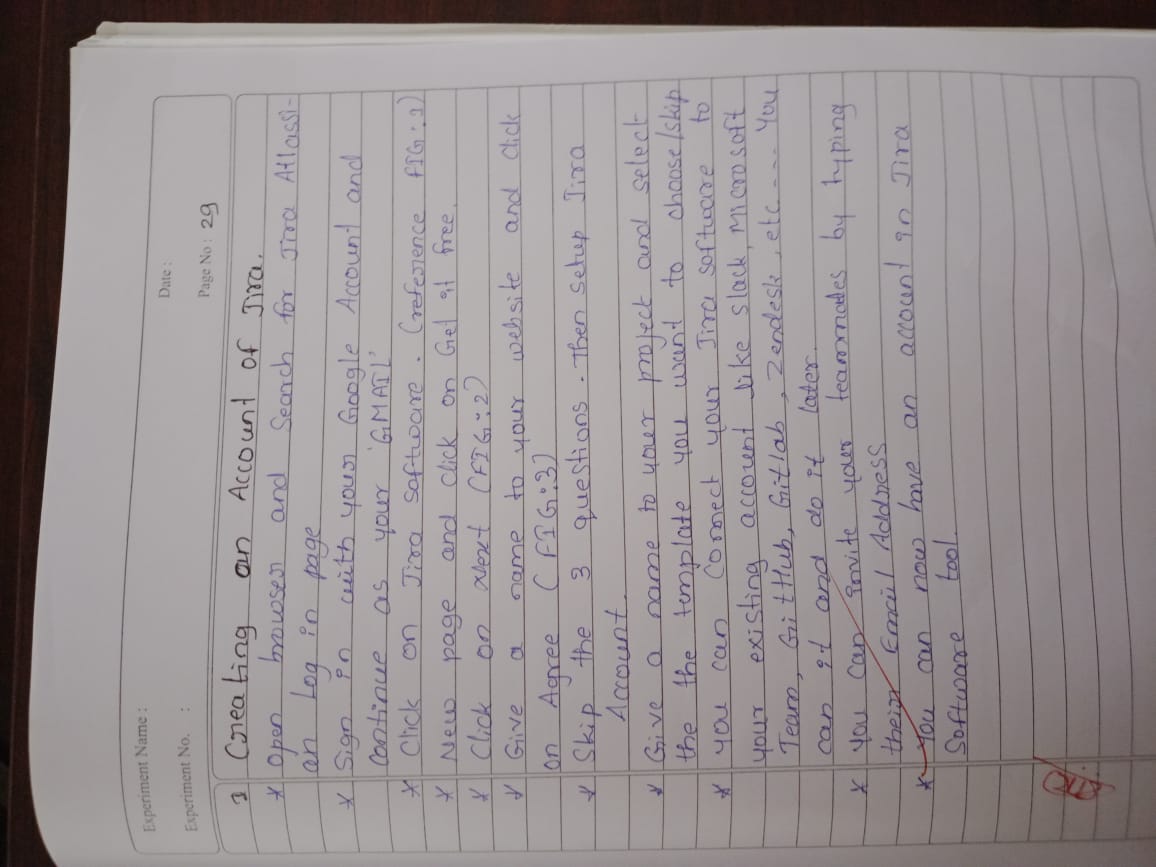 Experiment Name :
Date :
Experiment No. :
Page No : 29
1 Creating an Account of Jira.
* Open browser and Search for Jira Atlassi-
an Log in page
* Sign in with your Google Account and
continue as your 'GMAIL'
* Click on Jira software. (reference FIG:1)
* New page and click on Get it free.
* Click on Next (FIG:2)
* Give a name to your website and click
on Agree (FIG:3)
* Skip the 3 questions. Then setup Jira
Account.
* Give a name to your project and select
the the template you want to choose/skip
* you can connect your Jira software to
your existing account like slack, Microsoft
Team, GitHub, Gitlab, Zendesk, etc---- You
can it and do it later.
* You can invite your teammades by typing
their Email Address
* You can now have an account in Jira
Software tool.